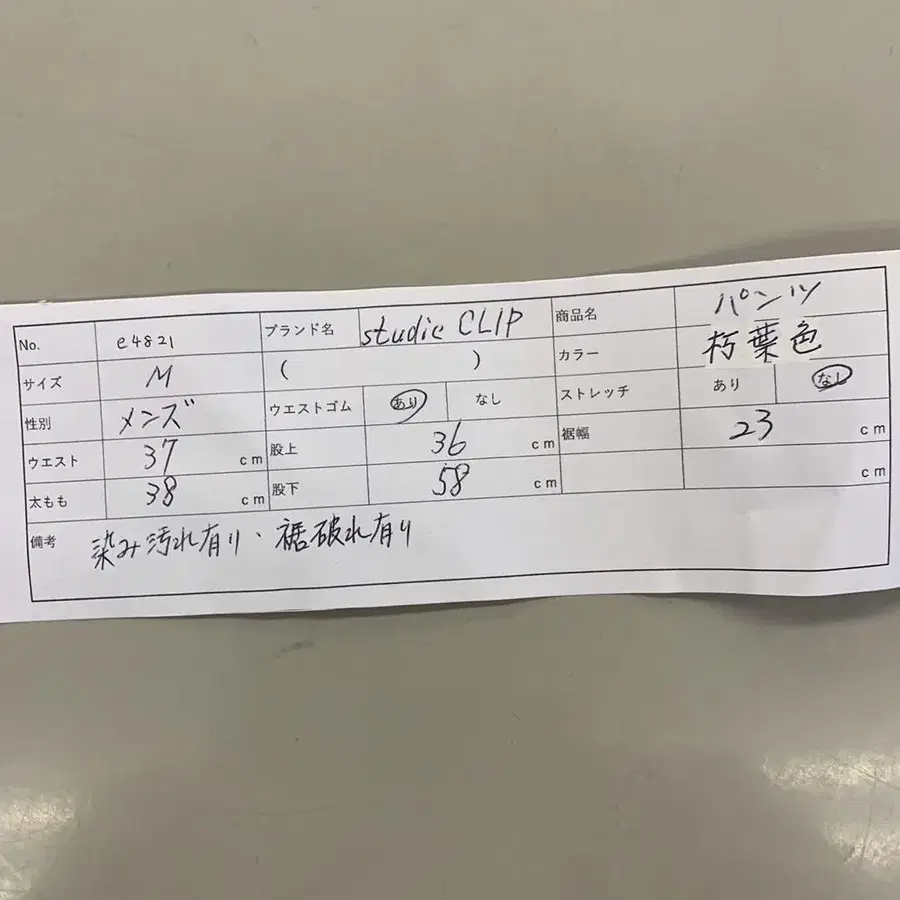 No. e4821 ブランド名 studio CLIP 商品名 パンツ
サイズ M ( ) カラー 朽葉色
性別 メンズ ウエストゴム あり なし ストレッチ あり なし
ウエスト 37 cm 股上 36 cm 裾幅 23 cm
太もも 38 cm 股下 58 cm cm
備考 染み汚れ有り、裾破れ有り